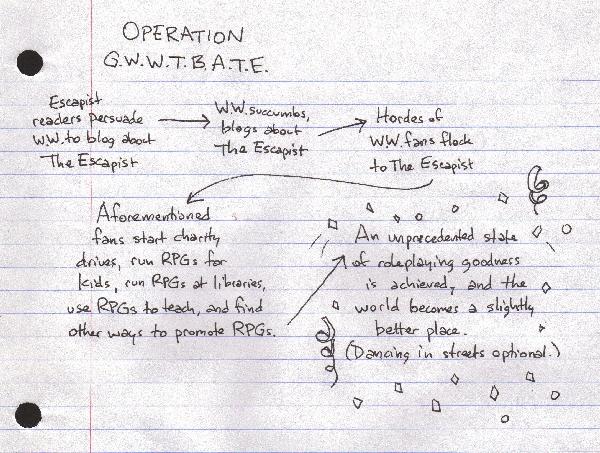 OPERATION
G.W.W.T.B.A.T.E.
Escapist
readers persuade
W.W. to blog about
The Escapist
W.W. succumbs,
blogs about
The Escapist
Hordes of
W.W. fans flock
to The Escapist
Aforementioned
fans start charity
drives, run RPGs for
kids, run RPGs at libraries,
use RPGs to teach, and find
other ways to promote RPGs.
An unprecedented state
of roleplaying goodness
is achieved, and the
world becomes a slightly
better place.
(Dancing in streets optional.)